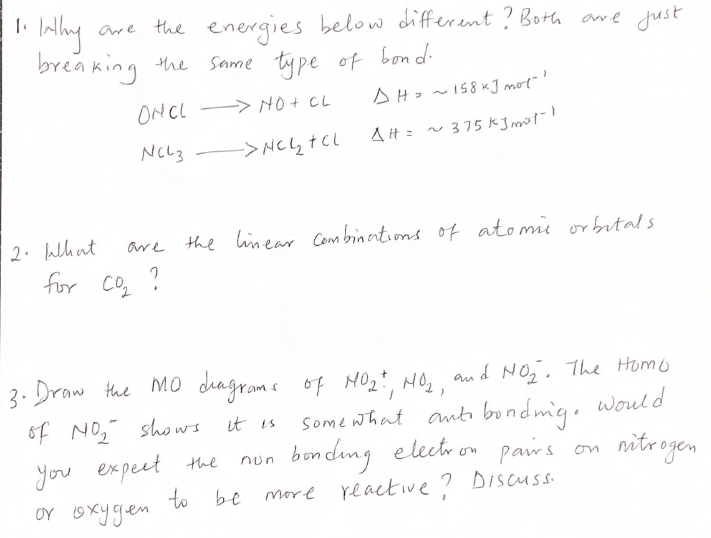 1. Why are the energies below different? Both are just
breaking the same type of bond.
ONCl → NO + Cl ΔH = ~158 kJ mol⁻¹
NCl₃ → NCl₂ + Cl ΔH = ~375 kJ mol⁻¹
2. What are the linear combinations of atomic orbitals
for CO₂ ?
3. Draw the MO diagrams of NO₂⁺, NO₂, and NO₂⁻. The Homo
of NO₂⁻ shows it is somewhat anti bonding. Would
you expect the non bonding electron pairs on nitrogen
or oxygen to be more reactive? Discuss.